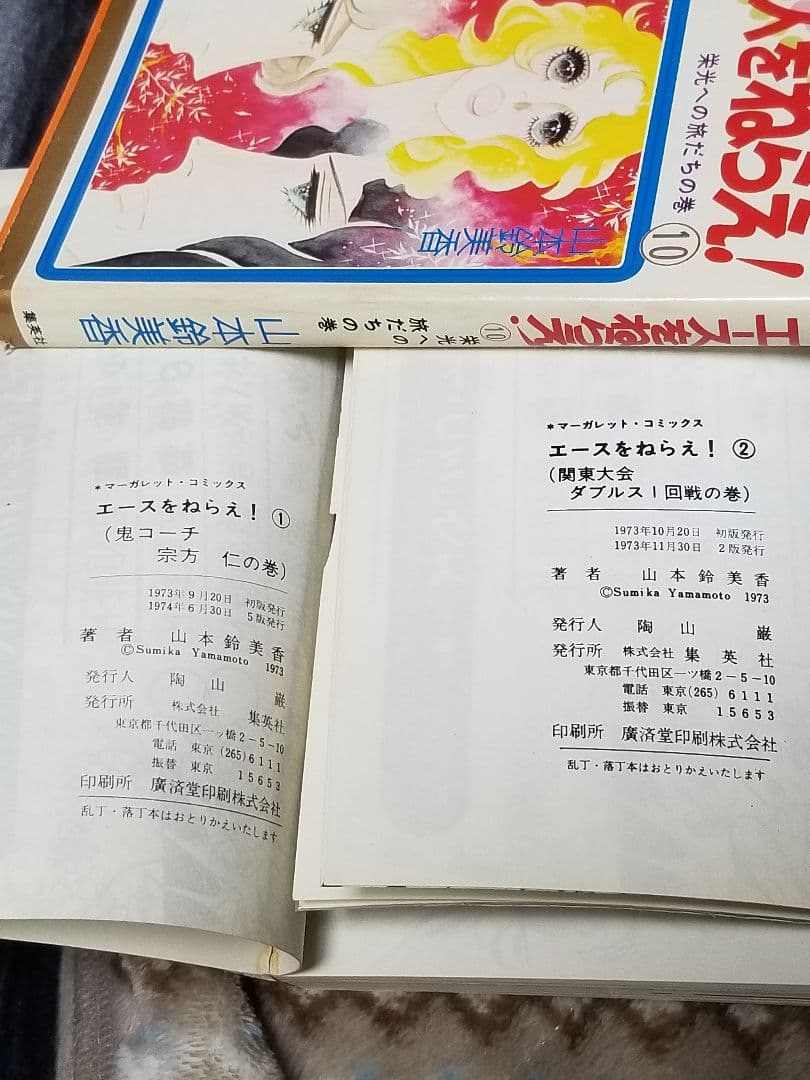 エースをねらえ！
栄光への旅だちの巻
⑩
山本鈴美香
エースをねらえ！
⑩
栄光への
旅だちの巻
山本鈴美香
集英社
＊マーガレット・コミックス
エースをねらえ！ ①
（鬼コーチ
宗方 仁の巻）
1973年9月20日 初版発行
1974年6月30日 5版発行
著者 山本鈴美香
©Sumika Yamamoto 1973
発行人 陶山 巌
発行所 株式会社 集英社
東京都千代田区一ツ橋2-5-10
電話 東京(265)6111
振替 東京 15653
印刷所 廣済堂印刷株式会社
乱丁・落丁本はおとりかえいたします
＊マーガレット・コミックス
エースをねらえ！ ②
（関東大会
ダブルス1回戦の巻）
1973年10月20日 初版発行
1973年11月30日 2版発行
著者 山本鈴美香
©Sumika Yamamoto 1973
発行人 陶山 巌
発行所 株式会社 集英社
東京都千代田区一ツ橋2-5-10
電話 東京(265)6111
振替 東京 15653
印刷所 廣済堂印刷株式会社
乱丁・落丁本はおとりかえいたします